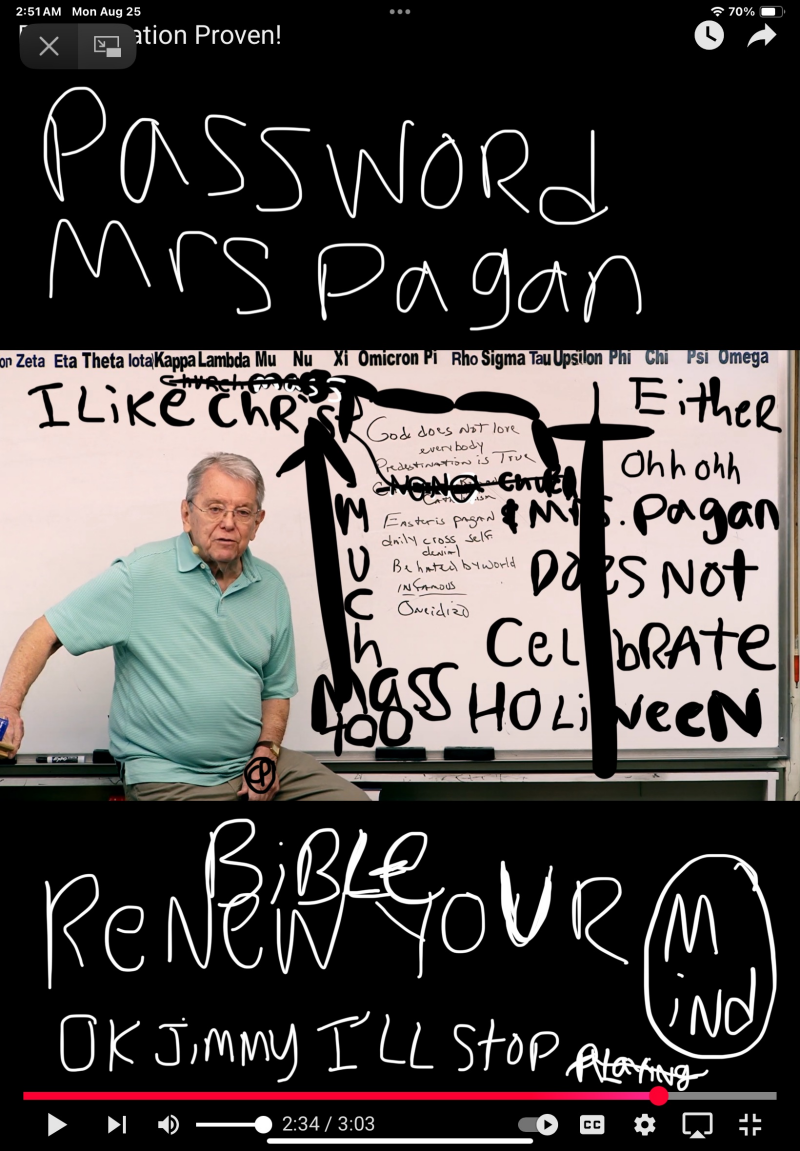 2:51 AM Mon Aug 25
70%
ation Proven!
PASSWORD
Mrs Pagan
on Zeta Eta Theta Iota Kappa Lambda Mu Nu Xi Omicron Pi Rho Sigma Tau Upsilon Phi Chi Psi Omega
I LiKE ChRisT
EiTHER
God does not love
everybody
Predestination is True
Ohh ohh
NONO Church
& Mrs. Pagan
Easter is pagan
daily cross self
denial
Be hated by world
INFAMOUS
MUCh
Mass
400
DOES NOT
CELEbRATE
HOLiWeeN
CP
BiBLE
ReNEW YOUR MiNd
OK JiMMY I'LL STOP PLAYiNg
2:34 / 3:03
CC